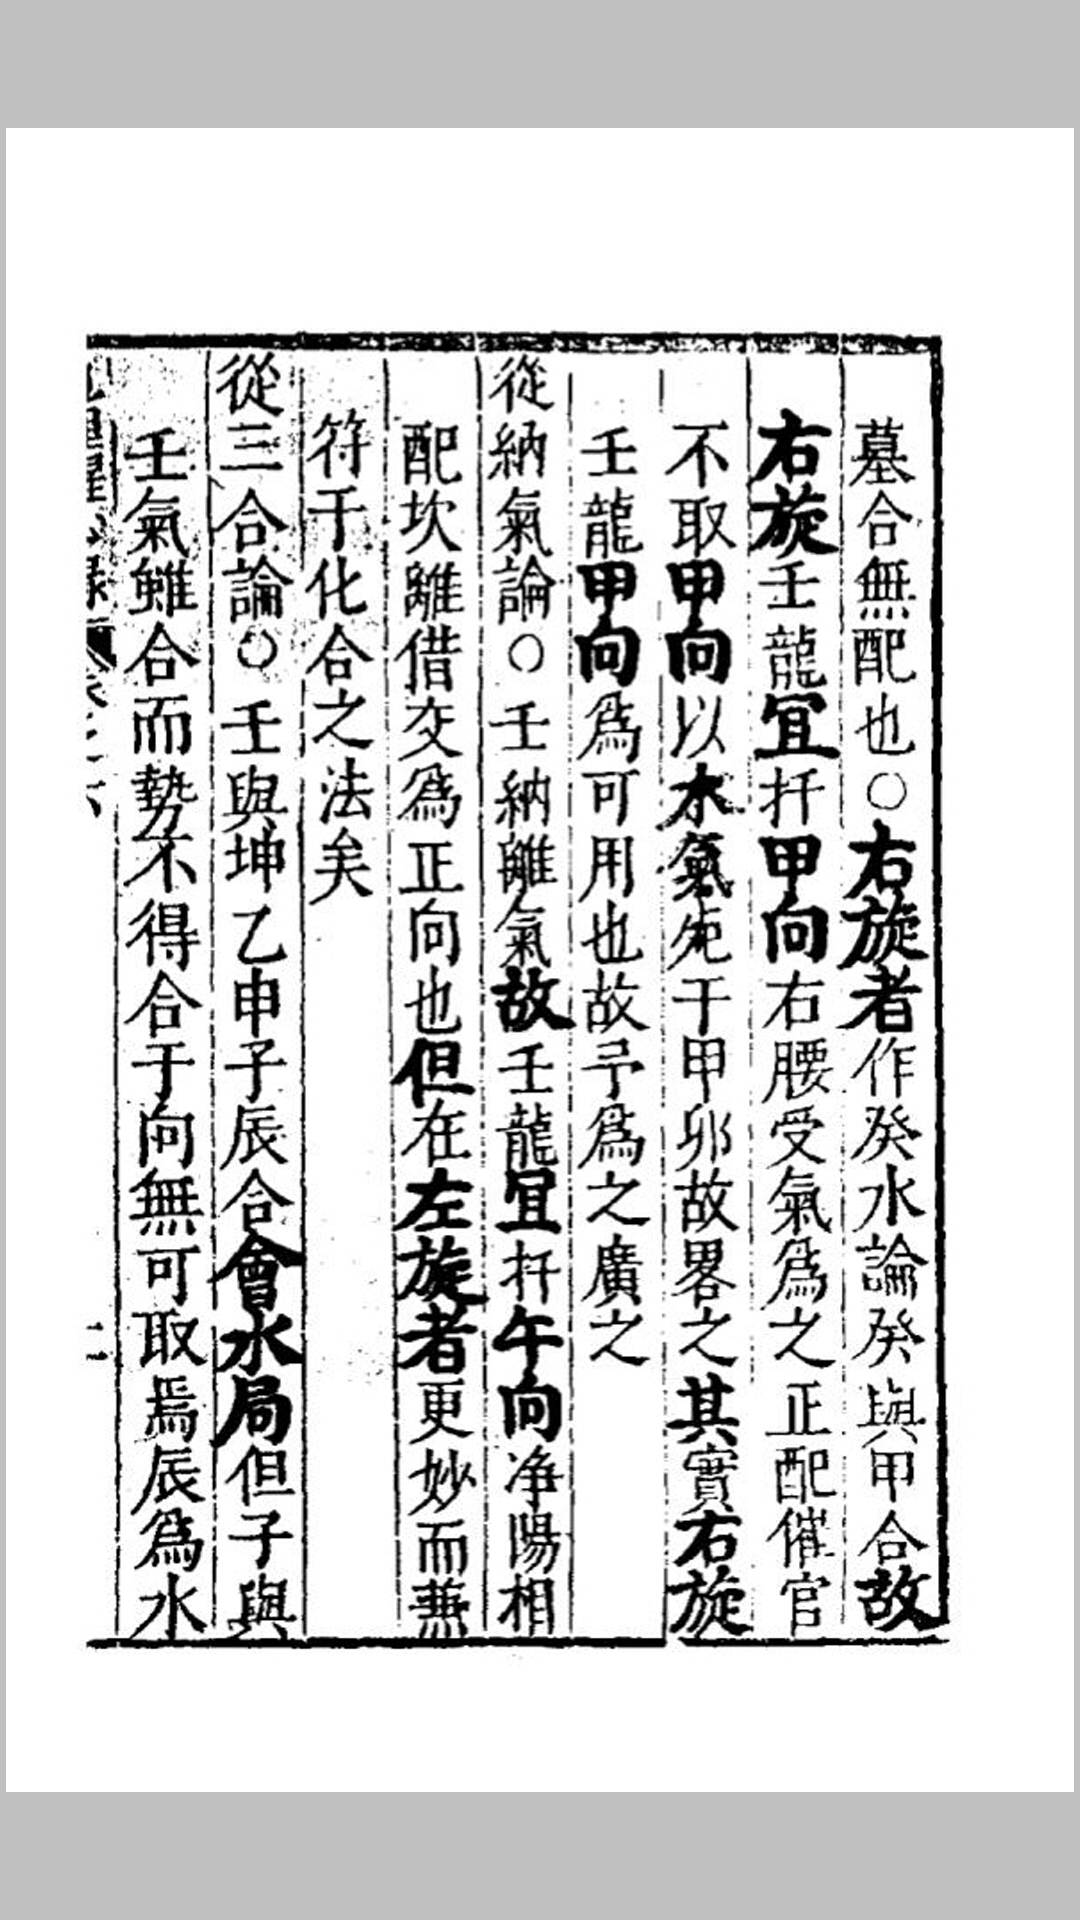 墓合無配也○右旋者作癸水論癸與甲合故
右旋壬龍宜扦甲向右腰受氣爲之正配催官
不取甲向以木氣死于甲卯故畧之其實右旋
壬龍甲向爲可用也故予爲之廣之
從納氣論○壬納離氣故壬龍宜扦午向净陽相
配坎離借交爲正向也但在左旋者更妙而兼
符于化合之法矣
從三合論○壬與坤乙申子辰合會水局但子與
壬氣雖合而勢不得合于向無可取焉辰爲水